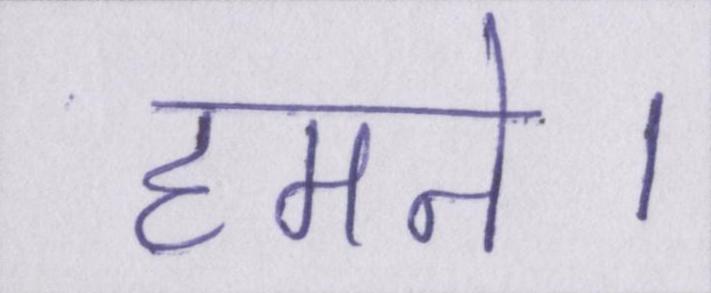 हमने।